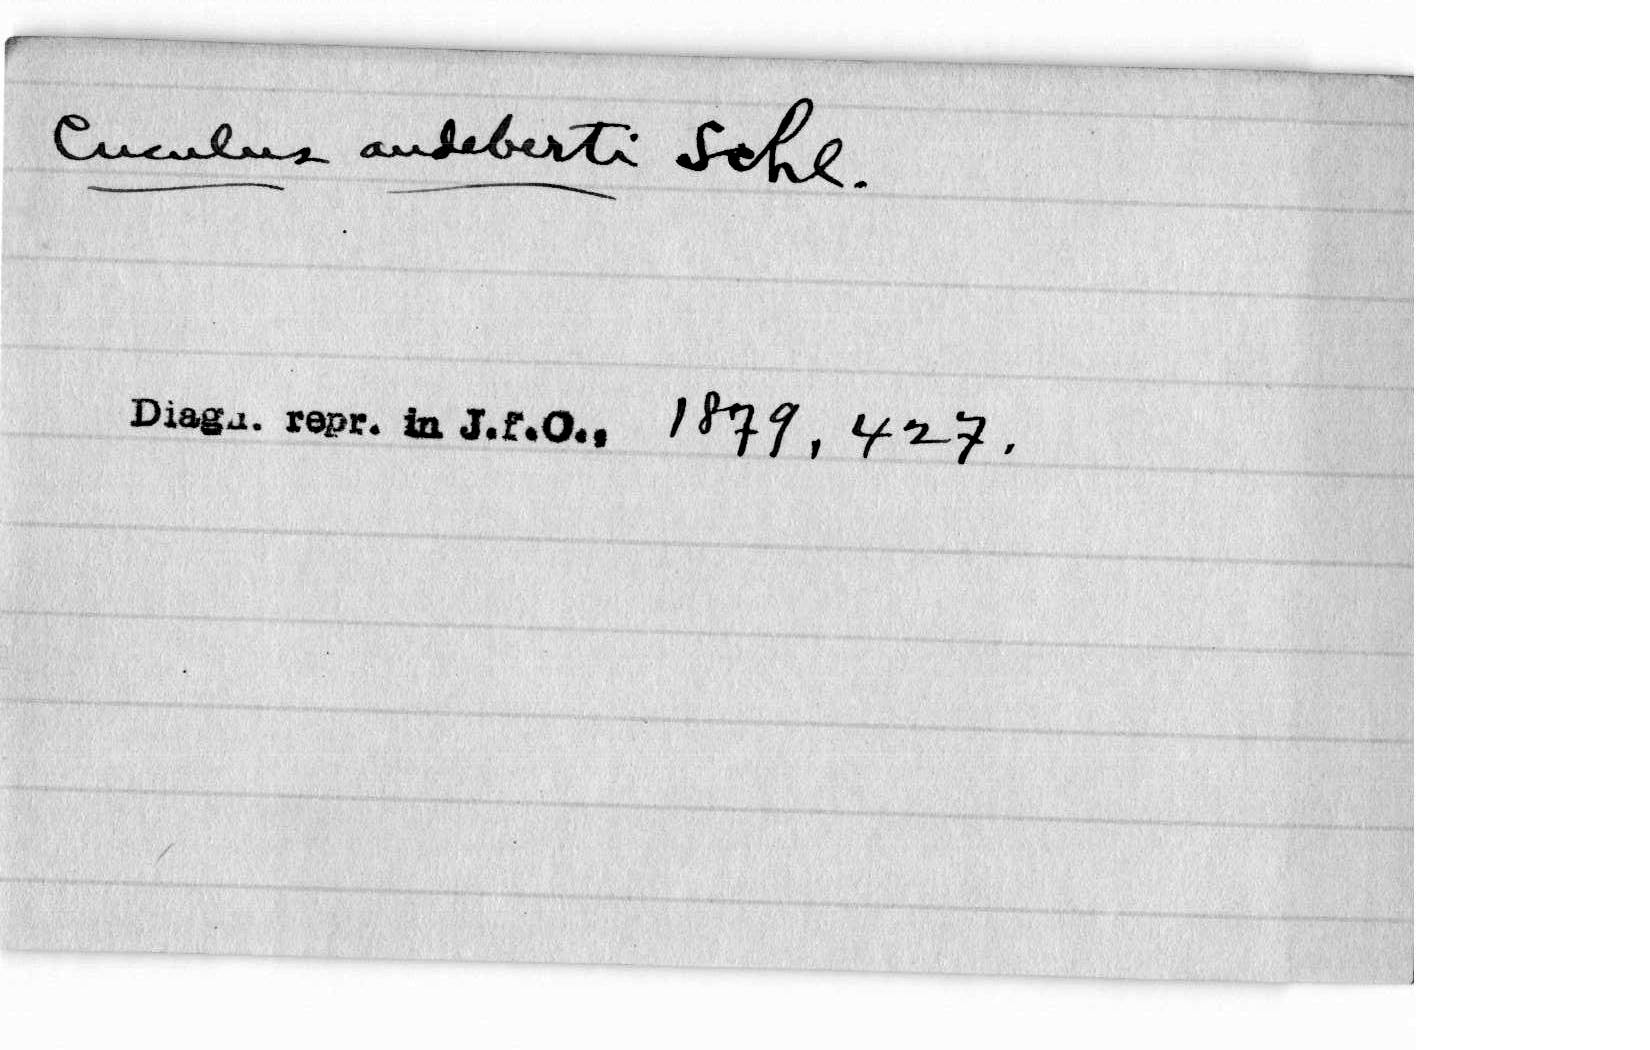 Cuculus audeberti Schl.
Diagn. repr. in J.f.O., 1879, 427.